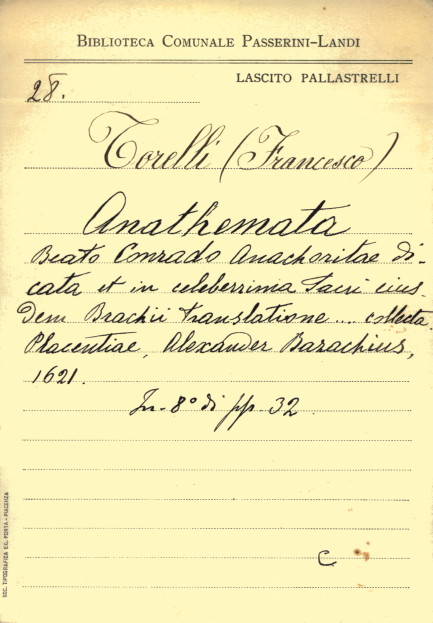 BIBLIOTECA COMUNALE PASSERINI-LANDI
LASCITO PALLASTRELLI
28.
Torelli (Francesco)
Anathemata
Beato Conrado Anachoritae di-
cata et in celeberrima Sacri eius-
dem Brachii translatione.... collecta.
Placentiae, Alexander Bazachius,
1621.
In-8° di pp. 32
C
SOC. TIPOGRAFICA ED. PORTA - PIACENZA